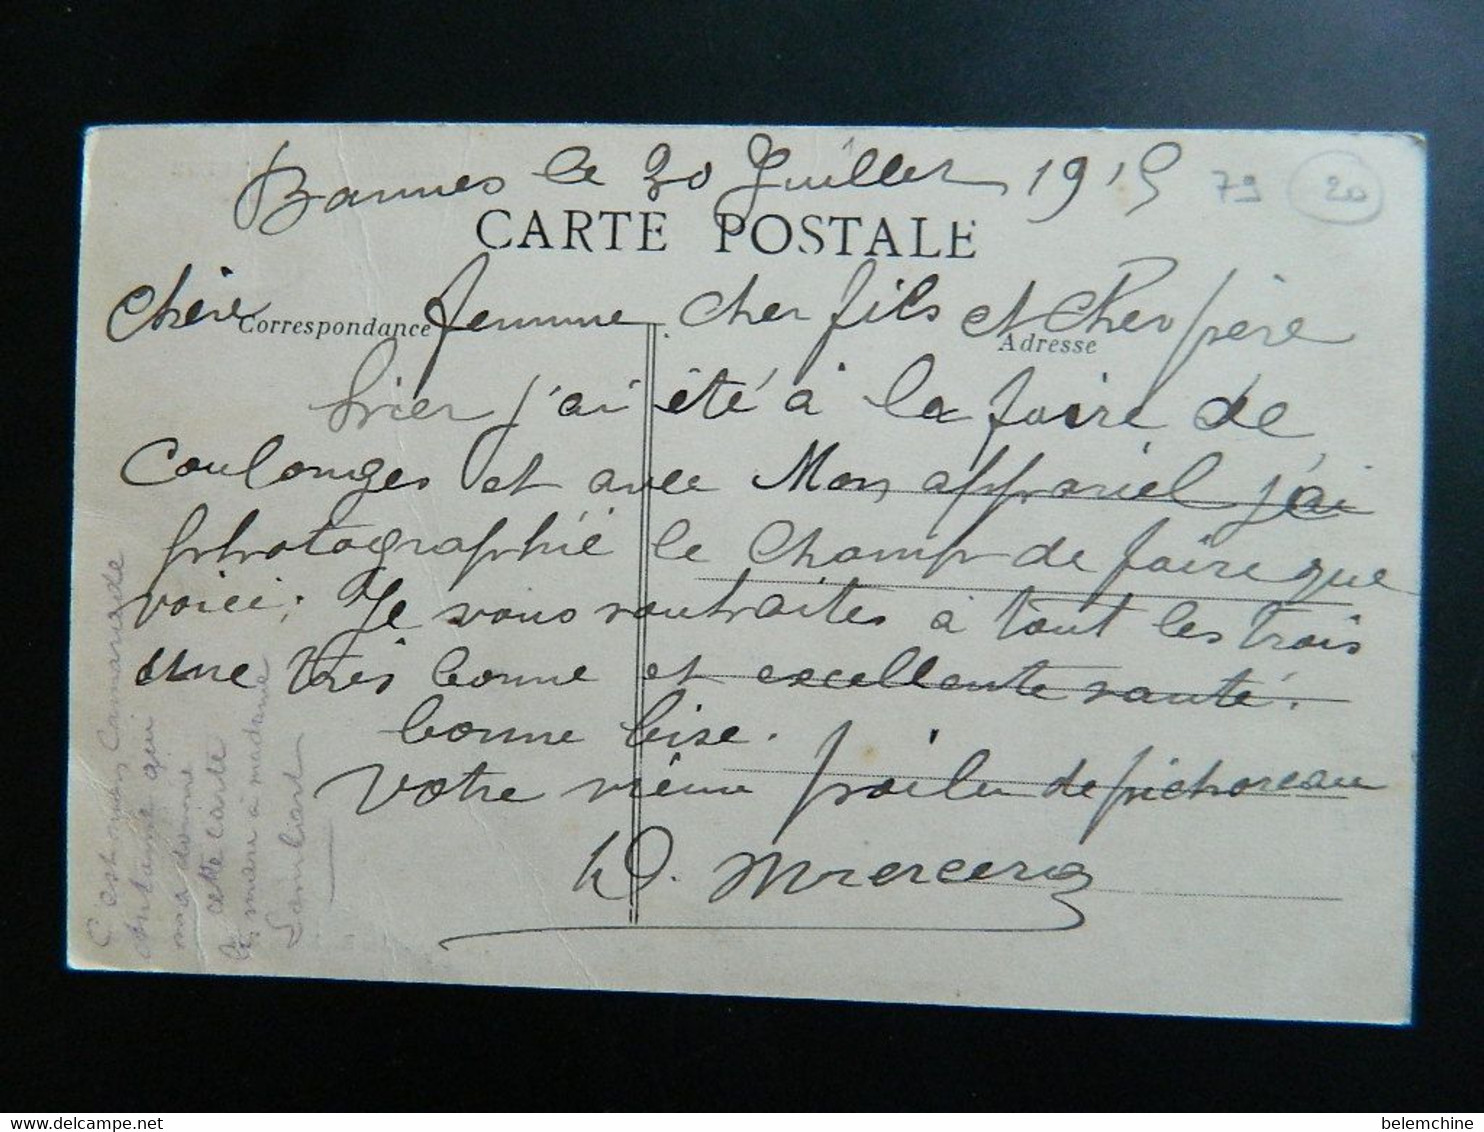 Bannes le 30 Juillet 1915
79 20
CARTE POSTALE
chère femme cher fils et cher père
Correspondance
Adresse
hier j'ai été à la foire de
Coulonges et avec Mon appariel j'ai
photographié le Champ de foire que
voici; Je vous souhaites à tout les trois
une très bonne et excellente santé.
bonne bise.
Votre poilu de
D. Mercer
C'est mon Camarade
Antoine qui
ma donné
cette carte
le mari à madame
Lambart
delcampe.net
belemchine